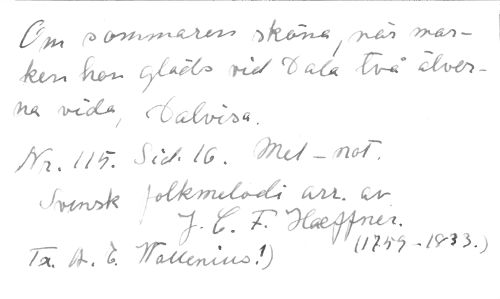 Om sommaren sköna, när mar-
ken hon gläds vid Dala två älver-
na vida, Dalvisa.
Nr. 115. Sid. 16. Mel-not.
Svensk folkmelodi arr. av
J. C. F. Hæffner.
(1759-1833.)
Tx. A. E. Wallenius!)